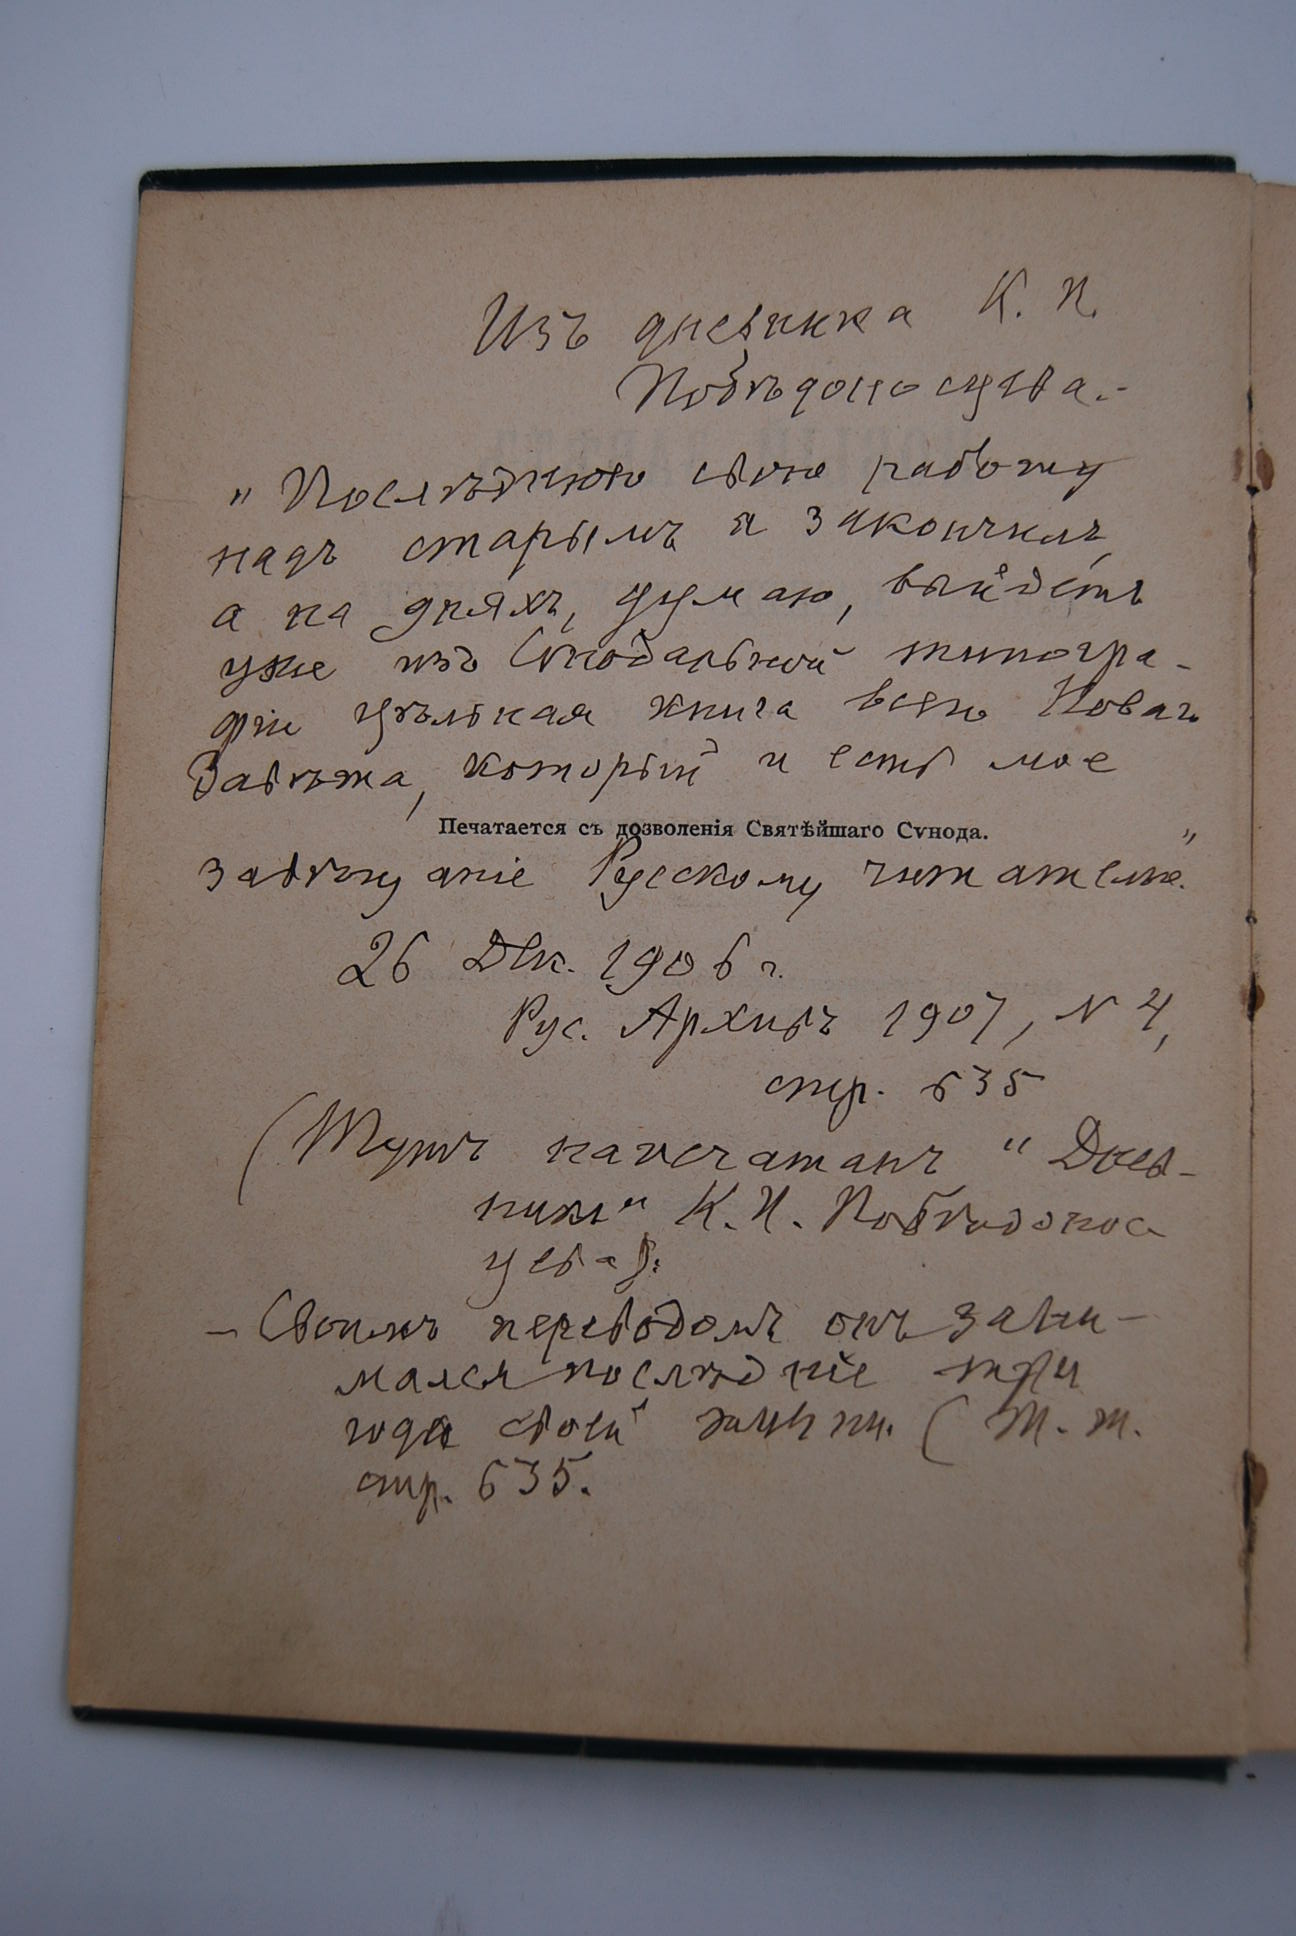 Изъ дневника К. П.
Побѣдоносцева.-
"Послѣднюю свою работу
надъ старымъ я закончилъ,
а на дняхъ, думаю, выйдетъ
уже изъ Сѵнодальной типогра-
фіи цѣльная книга всего Новаго
Завѣта, который и есть мое
Печатается съ дозволенія Святѣйшаго Сѵнода.
завѣщаніе Русскому читателю."
26 Дек. 1906 г.
Рус. Архивъ 1907, N 4,
стр. 635
(Тутъ напечатанъ "Днев-
никъ" К. П. Победонос
цева).
- Своимъ переводомъ онъ зани-
мался послѣдніе три
года своей жизни. (Т. ж.
стр. 635.